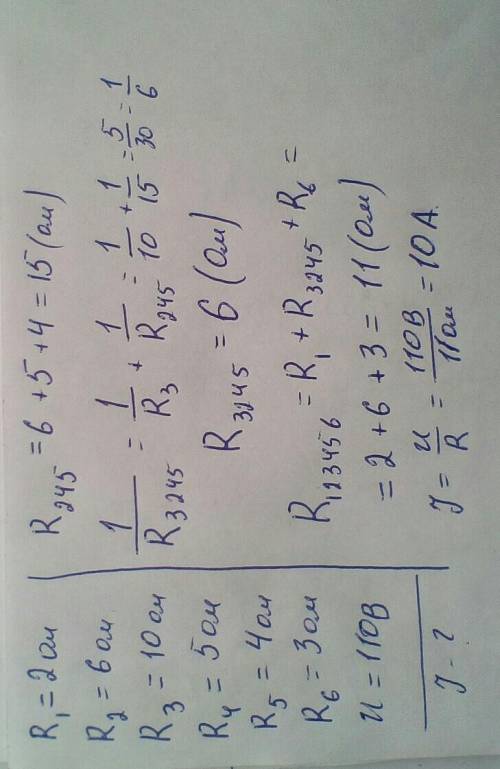 R₁ = 2 ом
R₂ = 6 ом
R₃ = 10 ом
R₄ = 5 ом
R₅ = 4 ом
R₆ = 3 ом
U = 110В
J - ?
R₂₄₅ = 6 + 5 + 4 = 15 (ом)
1/R₃₂₄₅ = 1/R₃ + 1/R₂₄₅ = 1/10 + 1/15 = 5/30 = 1/6
R₃₂₄₅ = 6 (ом)
R₁₂₃₄₅₆ = R₁ + R₃₂₄₅ + R₆ =
= 2 + 6 + 3 = 11 (ом)
J = U/R = 110В/11ом = 10А.